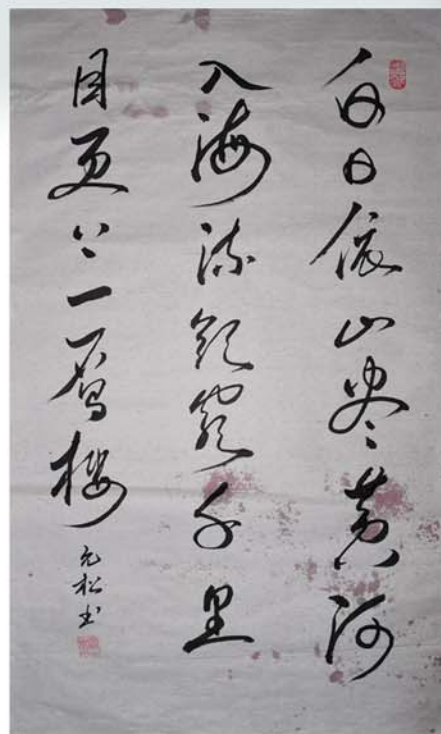 白日依山尽黄河
入海流欲穷千里
目更上一层楼
元松书